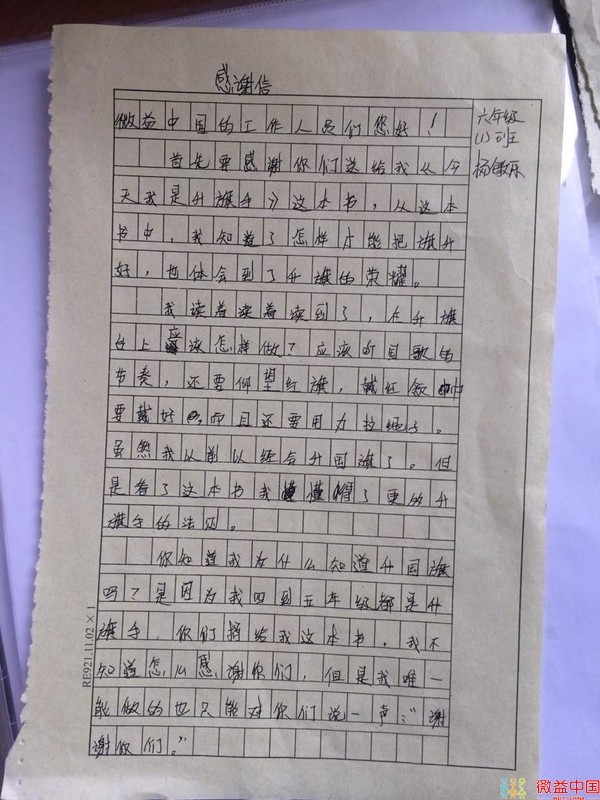 感谢信
六年级
(1)班
微益中国的工作人员们您好！
首先要感谢你们送给我从今
天我是升旗手》这本书，从这本
书中，我知道了怎样才能把旗升
好，也体会到了升旗的荣耀。
我读着读着读到了，在升旗
台上应该怎样做？应该听国歌的
节奏，还要仰望红旗，
要戴好而且还要用力拉绳子。
虽然我以前以经会升国旗了。但
是看了这本书我懂得了更的升
旗手的法则。
你知道我为什么知道升国旗
吗？是因为我四到五年级都是升
旗手，你们捐给我这本书，我不
知道怎么感谢你们，但是我唯一
能做的也只能对你们说一声：“谢
谢你们。”
RE921.11.02×1
微益中国